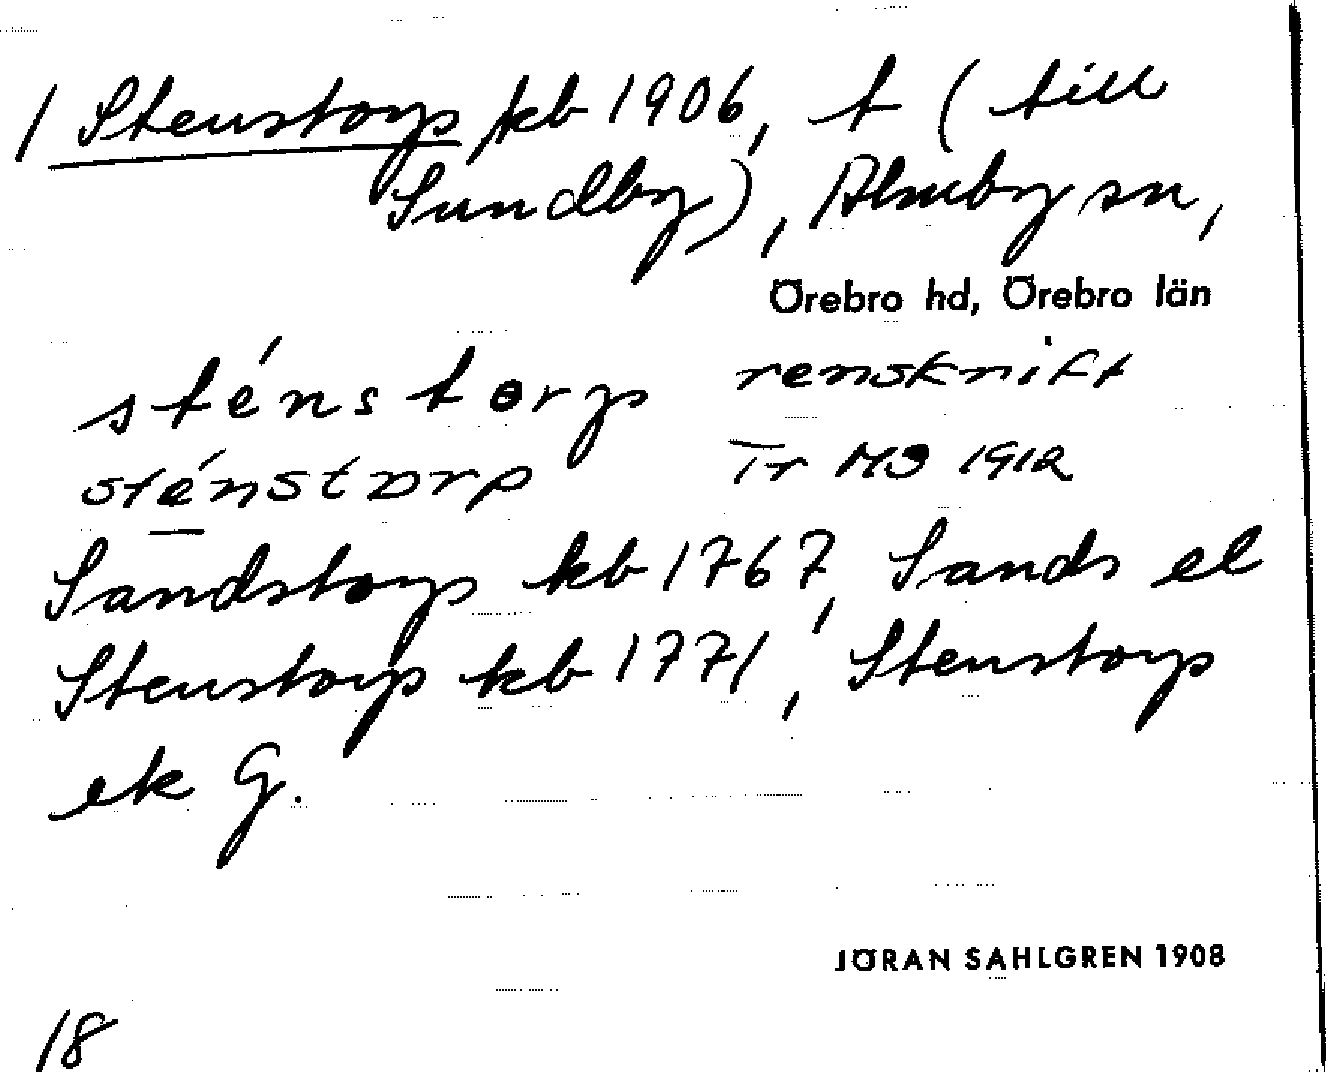 1 Stenstorp kb 1906, t (till
Sundby), Almby sn,
Örebro hd, Örebro län
sténstorp renskrift
sténstorp Tr MS 1912
Sandstorp kb 1767, Sands el
Stenstorp kb 1771, Stenstorp
ek G.
JÖRAN SAHLGREN 1908
18